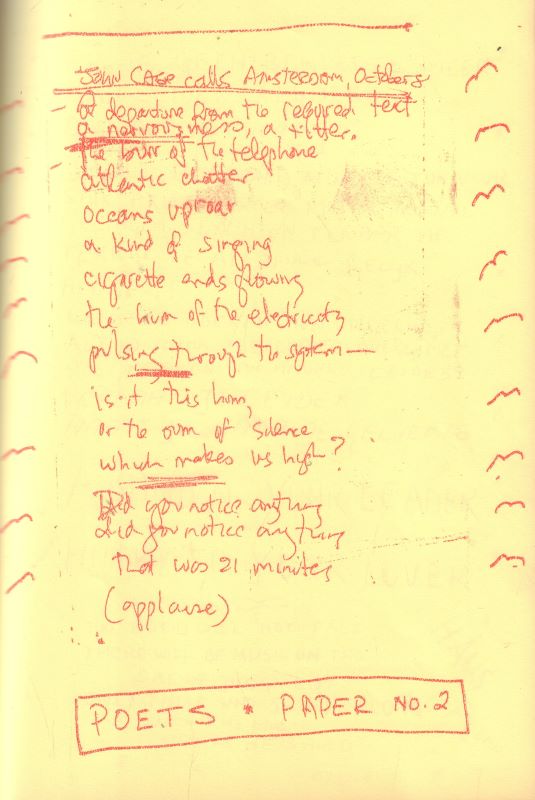 John Cage calls Amsterdam, October 5
A departure from the required text
a nervousness, a titter.
the burr of the telephone
atlantic chatter
oceans uproar
a kind of singing
cigarette ends glowing
the hum of the electricity
pulsing through the system—
is it this hum,
or the sum of silence
which makes us high?
Did you notice anything
did you notice anything
that was 21 minutes
(applause)
POETS • PAPER NO. 2